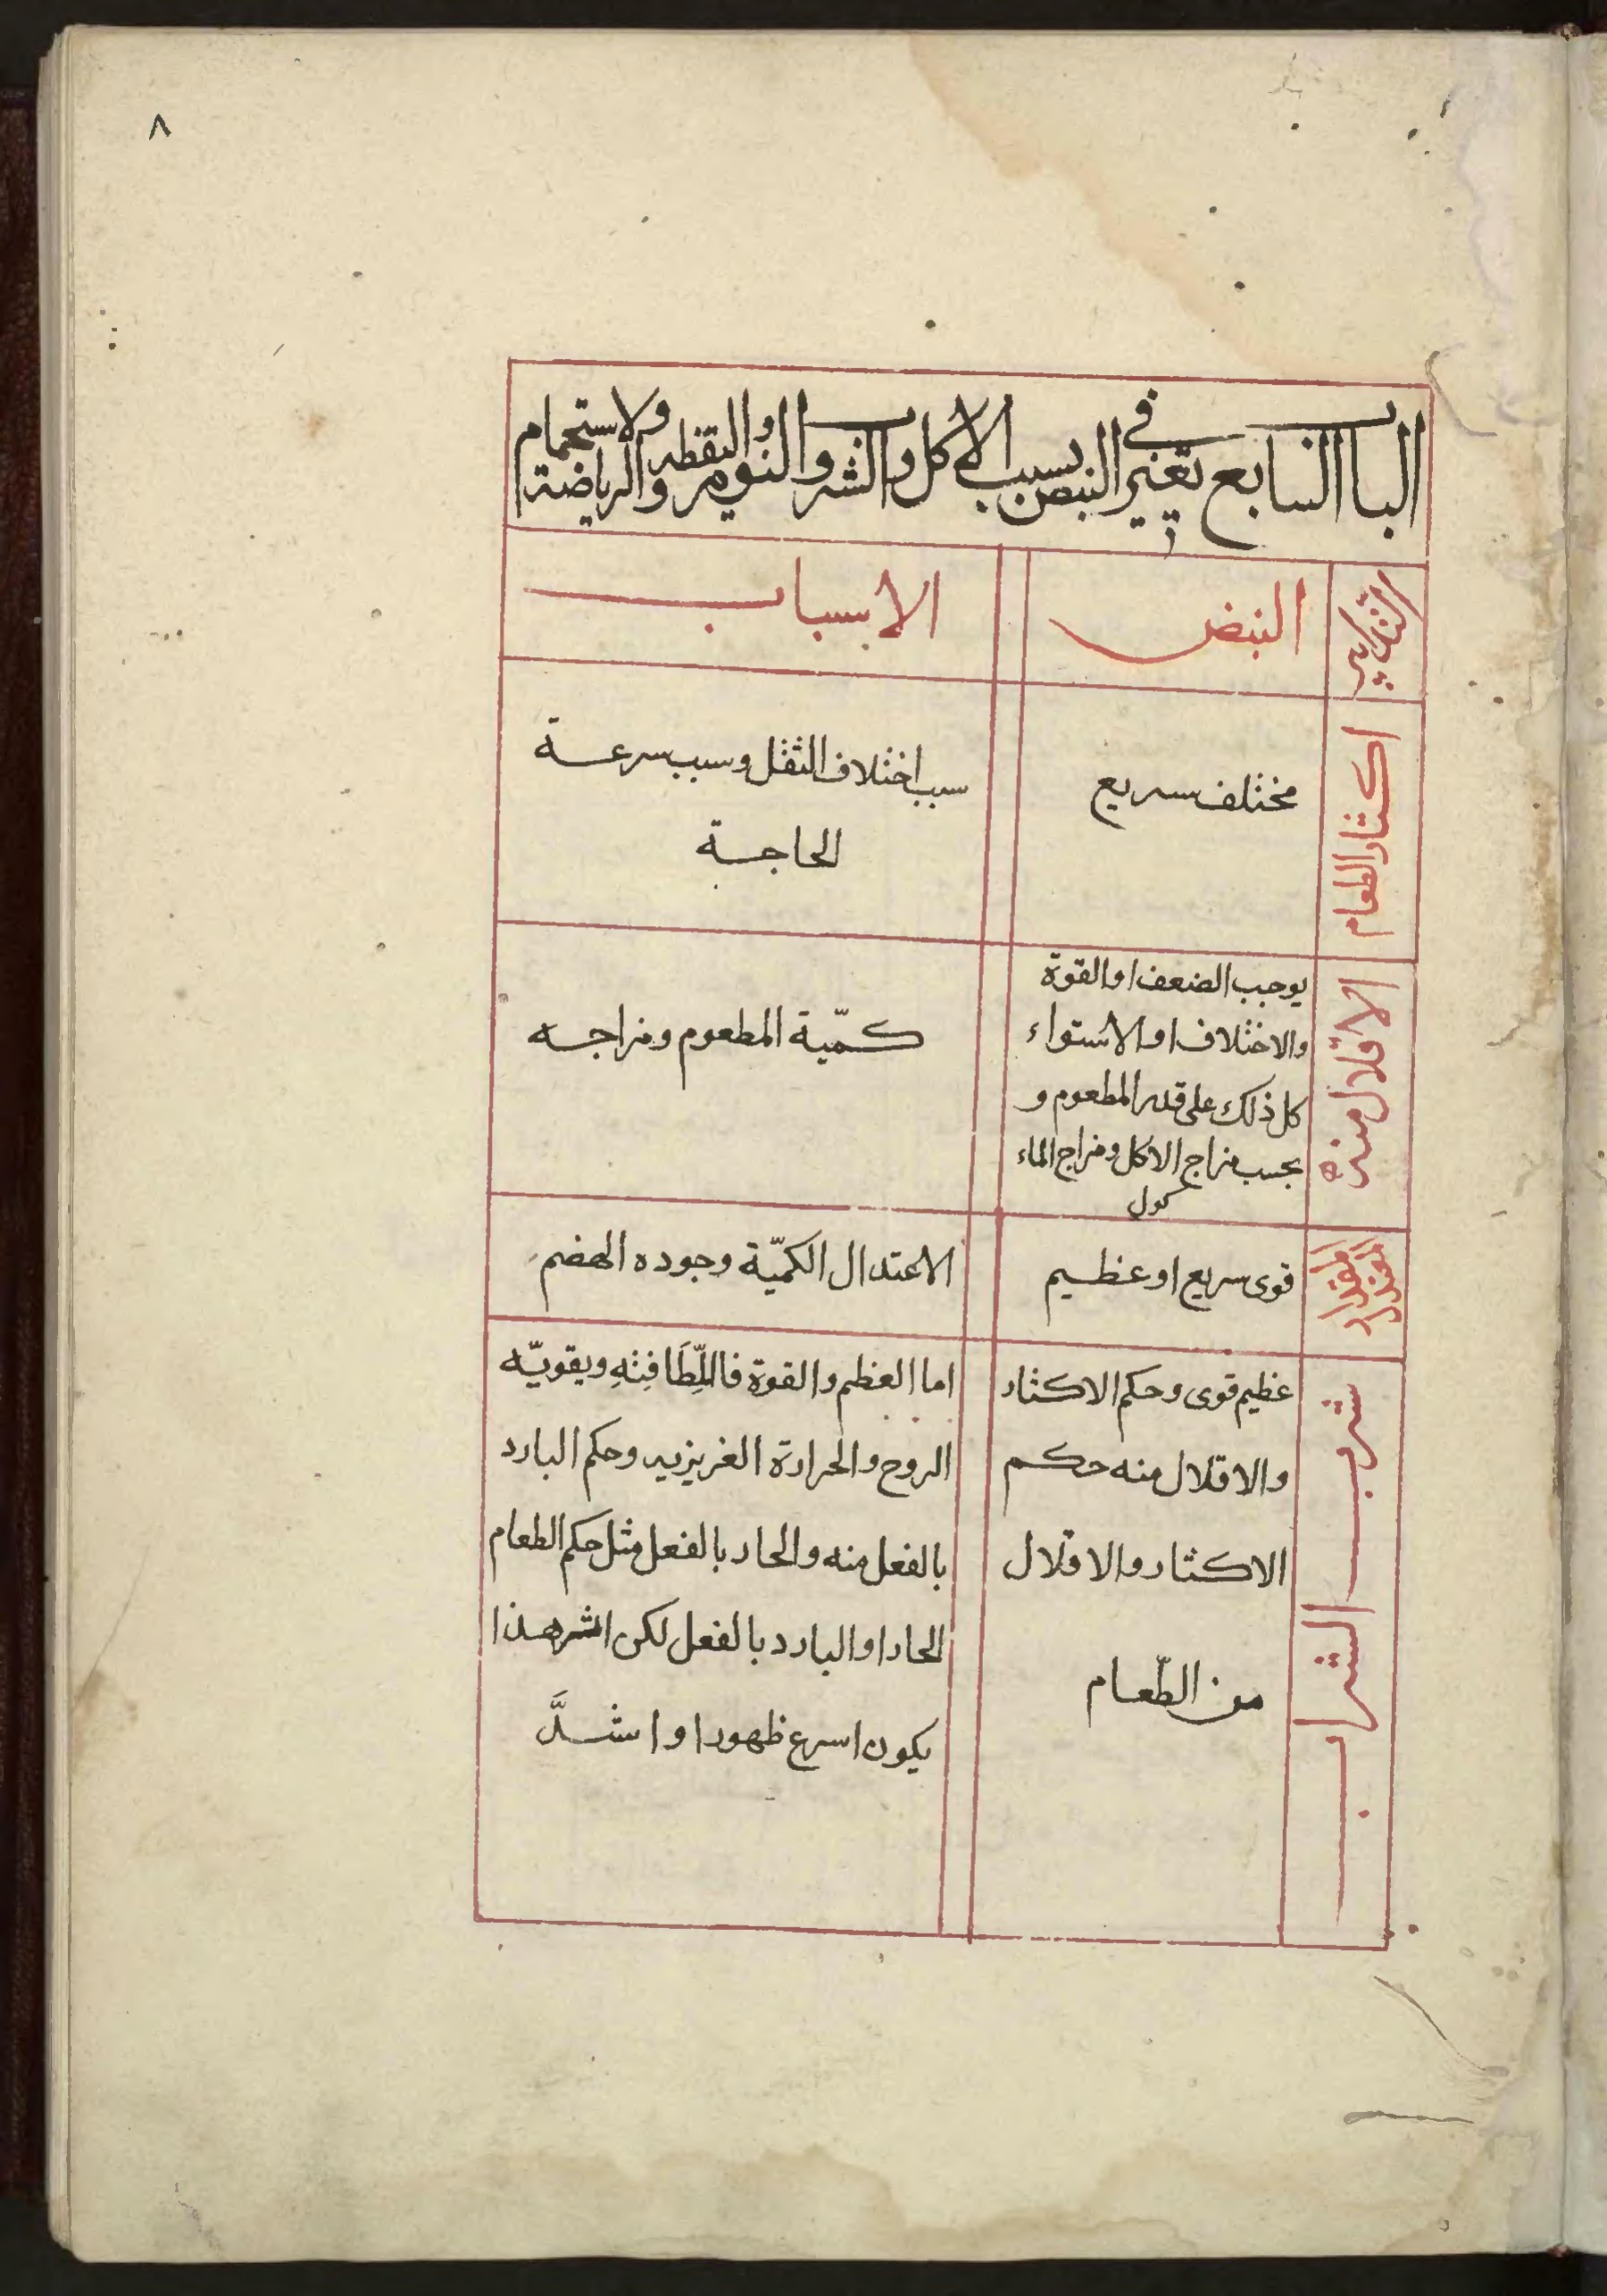 ٨
الباب السابع في تغير النبض بسبب الاكل والشراب والنوم واليقظه والرياضة والاستحمام
التدبير
النبض
الاسباب
اكثار الطعام
مختلف سريع
سبب اختلاف الثقل وسبب سرعة
الحاجة
الاقلال منه
يوجب الضعف او القوة
والاختلاف او الاستواء
كل ذلك على قدر المطعوم و
بحسب مزاج الاكل ومزاج الماء
كول
كمّية المطعوم ومزاجه
المقدار
قوى سريع او عظيم
الاعتدال الكمّية وجوده الهضم
شرب الشراب
عظيم قوى وحكم الاكثار
والاقلال منه حكم
الاكثار والاقلال
من الطّعام
اما العظم والقوة فاللِّطَافِتهِ ويقويّه
الروح والحرارة الغريزيه وحكم البارد
بالفعل منه والحار بالفعل مثل حكم الطعام
الحار او البارد بالفعل لكن اشر هذا
يكون اسرع ظهورا واشدَّ